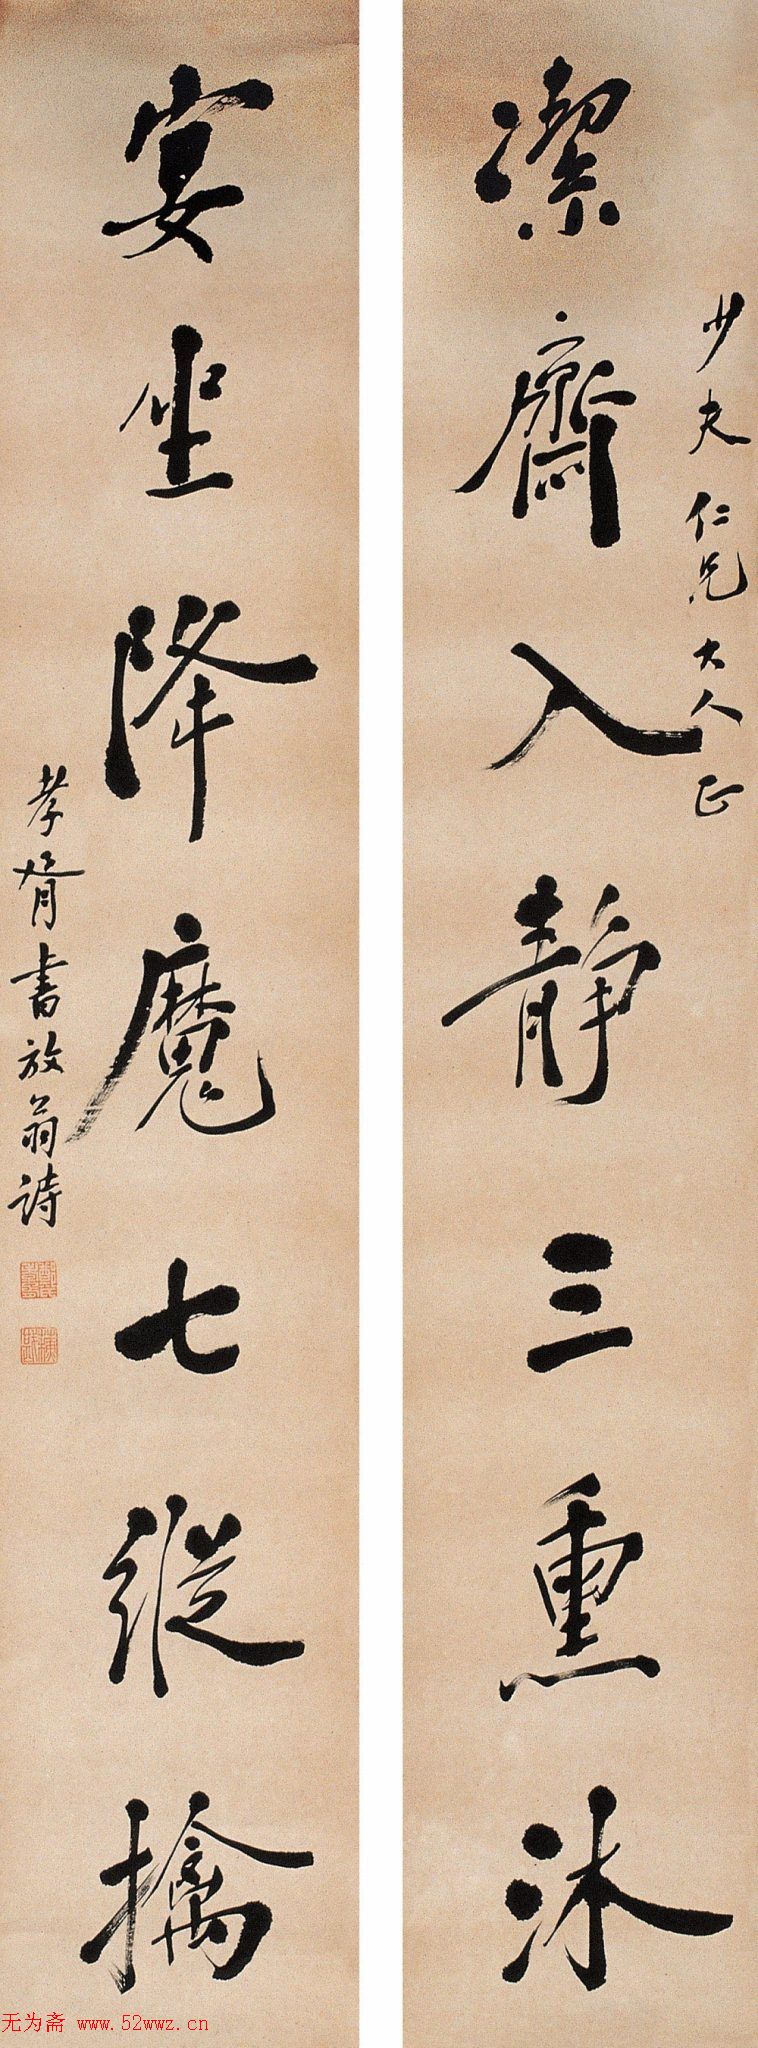 少夫仁兄大人正
潔齋入靜三熏沐
宴坐降魔七縱擒
孝胥書放翁詩
无为斋 www.52wwz.cn